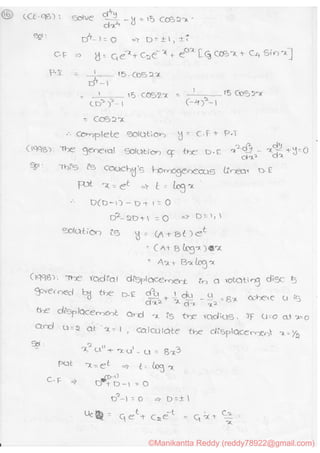 16 (CE-98): Solve d⁴y/dx⁴ - y = 15 cos2x.
Sol: D⁴-1=0 ⇒ D=±1, ±i
C.F ⇒ y = C₁eˣ + C₂e⁻ˣ + e⁰ˣ [C₃ cosx + C₄ sinx]
P.I = 1/(D⁴-1) 15.cos2x
= 1/((D²)²-1) 15.cos2x = 1/((-4)²-1) 15 cos2x
= cos2x
∴ complete solution y = C.F + P.I
(1998): The general solution of the D.E x² d²y/dx² - x dy/dx + y = 0
Sol: This is cauchy's homogeneous linear D.E
put x = eᵗ ⇒ t = log x
∴ D(D-1) - D + 1 = 0
D²-2D+1 = 0 ⇒ D=1,1
Solution is y = (A+Bt) eᵗ
= (A+B logx) x
= Ax + Bx logx
(1998): The radial displacement in a rotating disc is
governed by the D.E d²u/dx² + 1/x du/dx - u/x² = 8x where u is
the displacement and x is the radius. If u=0 at x=0
and u=2 at x=1, calculate the displacement x=½
Sol: x²u'' + xu' - u = 8x³
put x=eᵗ ⇒ t = log x
C.F ⇒ D(D-1) + D - 1 = 0
D²-1=0 ⇒ D=±1
Uc = C₁eᵗ + C₂e⁻ᵗ = C₁x + C₂/x
©Manikantta Reddy (reddy78922@gmail.com)